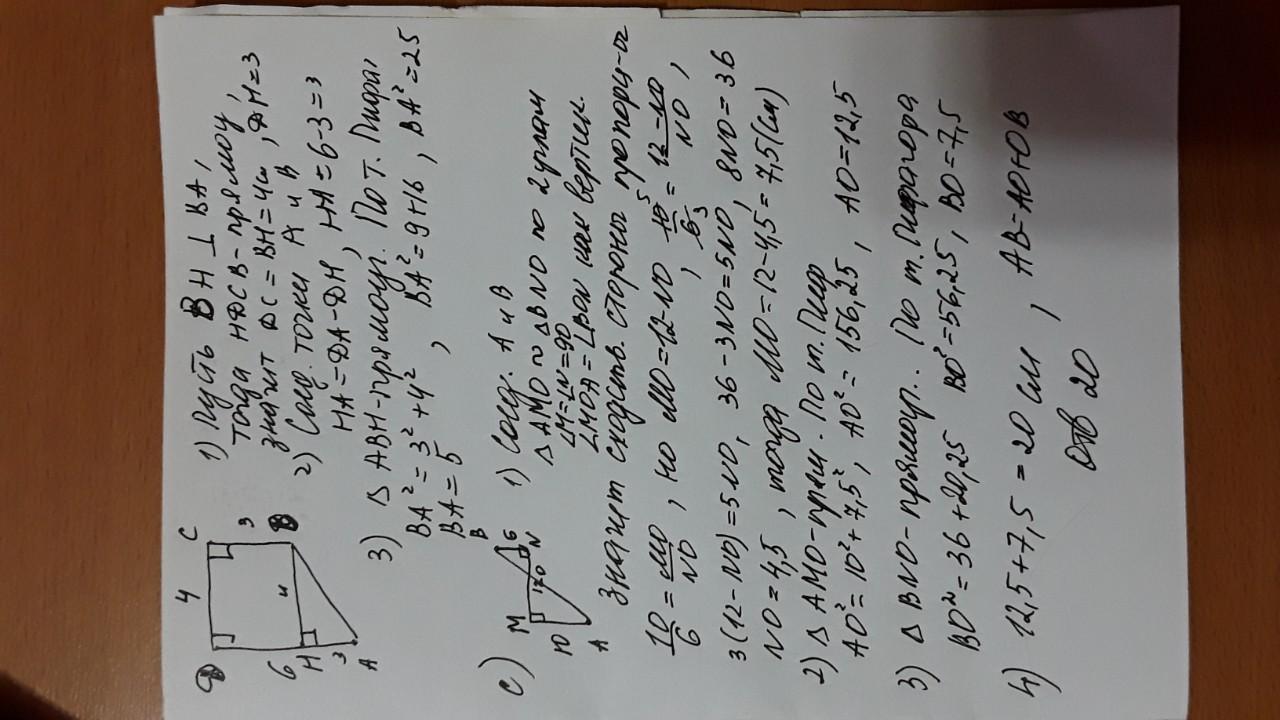 D 4 C
3
6 4
H B
3
A
1) Пусть BH ⊥ BA,
тогда HDCB - прямоу,
значит DC = BH = 4см, DH = 3
2) Соед. точки A и B
HA = DA - DH, HA = 6-3 = 3
3) Δ ABH - прямоуг. По т. Пифа,
BA² = 3² + 4², BA² = 9+16, BA² = 25
BA = 5
c)
M B
10 12 O 6
A N
1) Соед. A и B
Δ AMO ~ Δ BNO по 2 углам
∠M = ∠N = 90
∠MOA = ∠BON как вертик.
Значит сходств. стороны пропорц-а
10/6 = MO/NO, но MO = 12-NO, 10⁵/6³ = 12-NO/NO,
3(12-NO) = 5NO, 36-3NO = 5NO, 8NO = 36
NO = 4,5, тогда MO = 12-4,5 = 7,5 (см)
2) Δ AMO - прям. По т. Пиф
AO² = 10² + 7,5², AO² = 156,25, AO = 12,5
3) Δ BNO - прямоуг.. По т. Пифагора
BO² = 36 + 20,25 BO² = 56,25, BO = 7,5
4) 12,5 + 7,5 = 20 см, AB = AO + OB
Отв 20